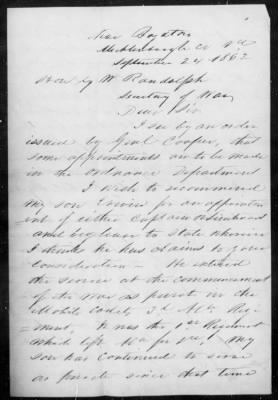 Near Boydton
Mecklenburgh Co Va
September 24 1862
Hon G W Randolph
Secretary of War
Dear Sir
I see by an order
issued by Genl Cooper, that
some appointments are to be made
in the Ordnance Department
I wish to recommend
my son for an appointm
ent of either Captain
and beg leave to state wherein
I think he has claims to your
consideration - He entered
the service at the commencement
of the war as private in the
Mobile Cadets 3d Regi
ment. It was the 1st Regiment
which left for Va, My
son has continued to serve
as private since that time